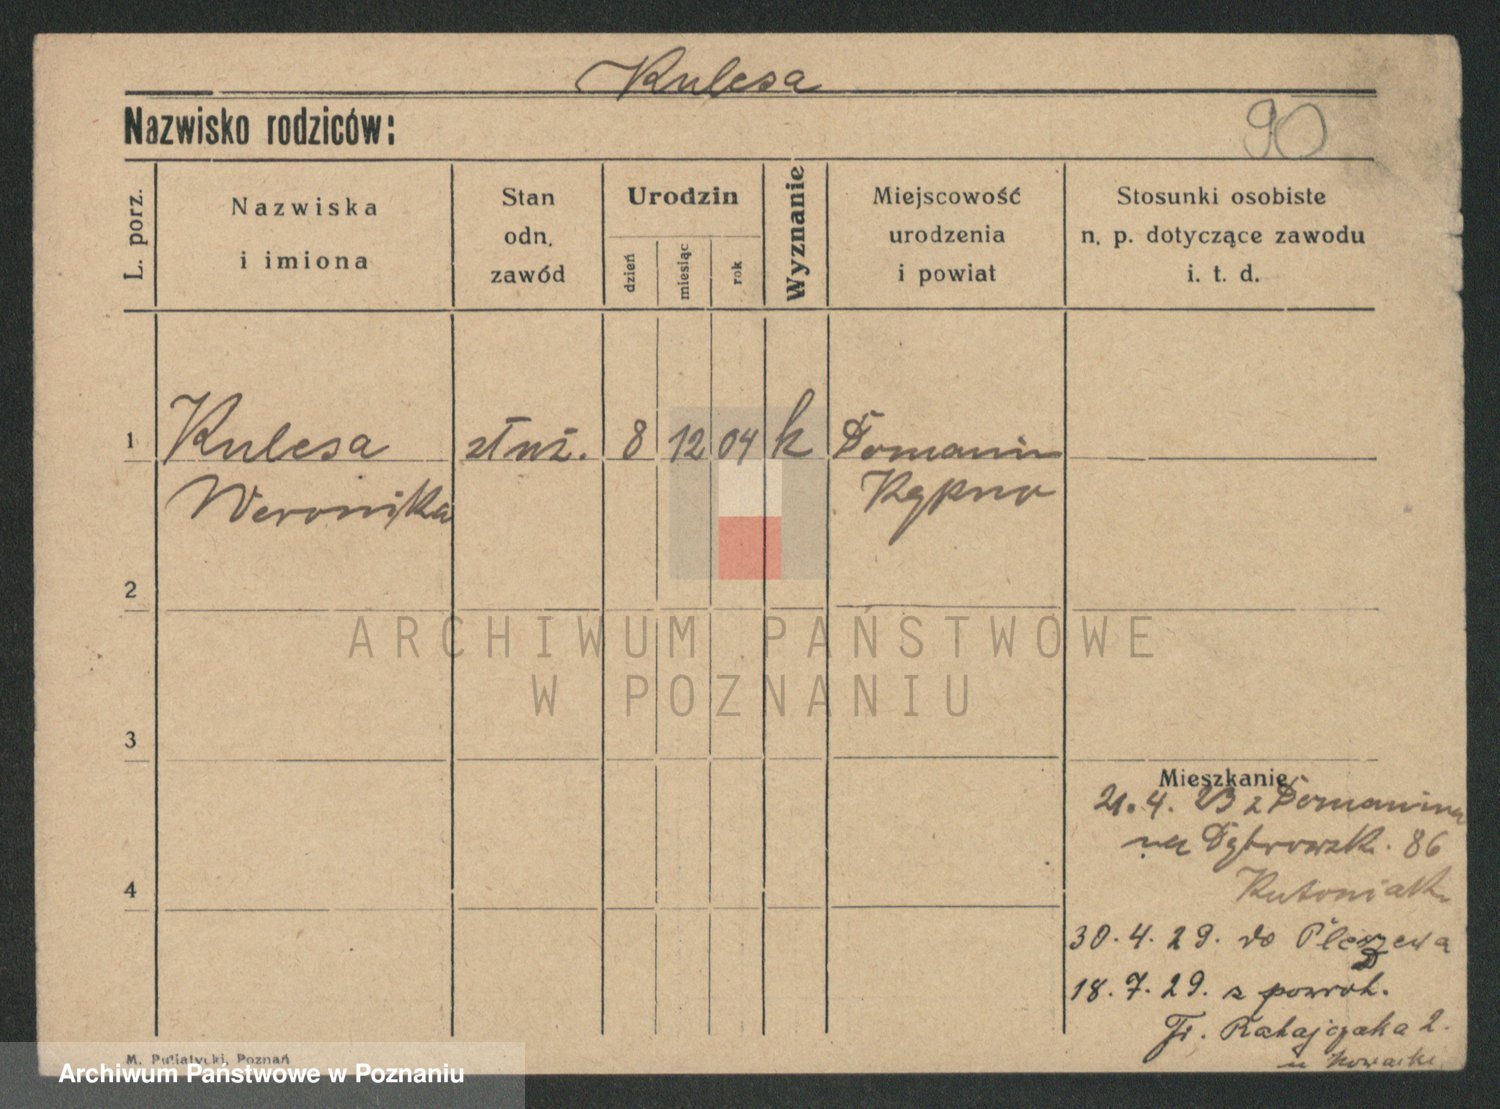 Kulesa
Nazwisko rodziców:
90
L. porz.
Nazwiska
i imiona
Stan
odn.
zawód
Urodzin
dzień
miesiąc
rok
Wyznanie
Miejscowość
urodzenia
i powiat
Stosunki osobiste
n. p. dotyczące zawodu
i. t. d.
1 Kulesa służ. 8 12 04 k Domanin
Weronika Kępno
2
ARCHIWUM PAŃSTWOWE
W POZNANIU
3
Mieszkanie
21. 4. 23 z Domanina
na Dąbrowsk. 86
4
30. 4. 29. do Pleszewa
18. 7. 29. z powrot.
Fr. Ratajczaka 2.
M. Putiatycki, Poznań
Archiwum Państwowe w Poznaniu